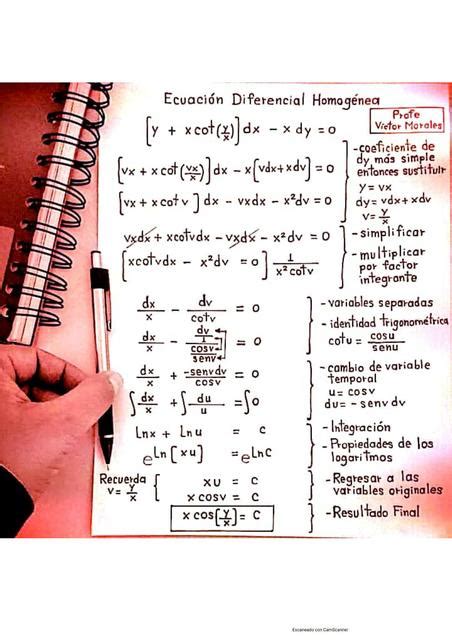 Ecuación Diferencial Homogénea
Profe
Víctor Morales
[y + x cot(y/x)] dx - x dy = 0
-coeficiente de
dy más simple
entonces sustituir
y = vx
dy = vdx + xdv
v = y/x
[vx + x cot(vx/x)] dx - x[vdx + xdv] = 0
[vx + x cot v] dx - vxdx - x²dv = 0
vxdx + xcotvdx - vxdx - x²dv = 0
-simplificar
[xcotvdx - x²dv = 0] 1/(x²cotv)
-multiplicar
por factor
integrante
dx/x - dv/cotv = 0
-variables separadas
dx/x - dv/(cosv/senv) = 0
-identidad trigonométrica
cotu = cosu/senu
dx/x + -senvdv/cosv = 0
-cambio de variable
temporal
u = cosv
du = -senvdv
∫dx/x + ∫du/u = ∫0
Lnx + Lnu = C
-Integración
e^Ln[xu] = e^LnC
-Propiedades de los
logaritmos
Recuerda
v = y/x
xu = C
x cosv = C
-Regresar a las
variables originales
x cos[y/x] = C
-Resultado Final
Escaneado con CamScanner